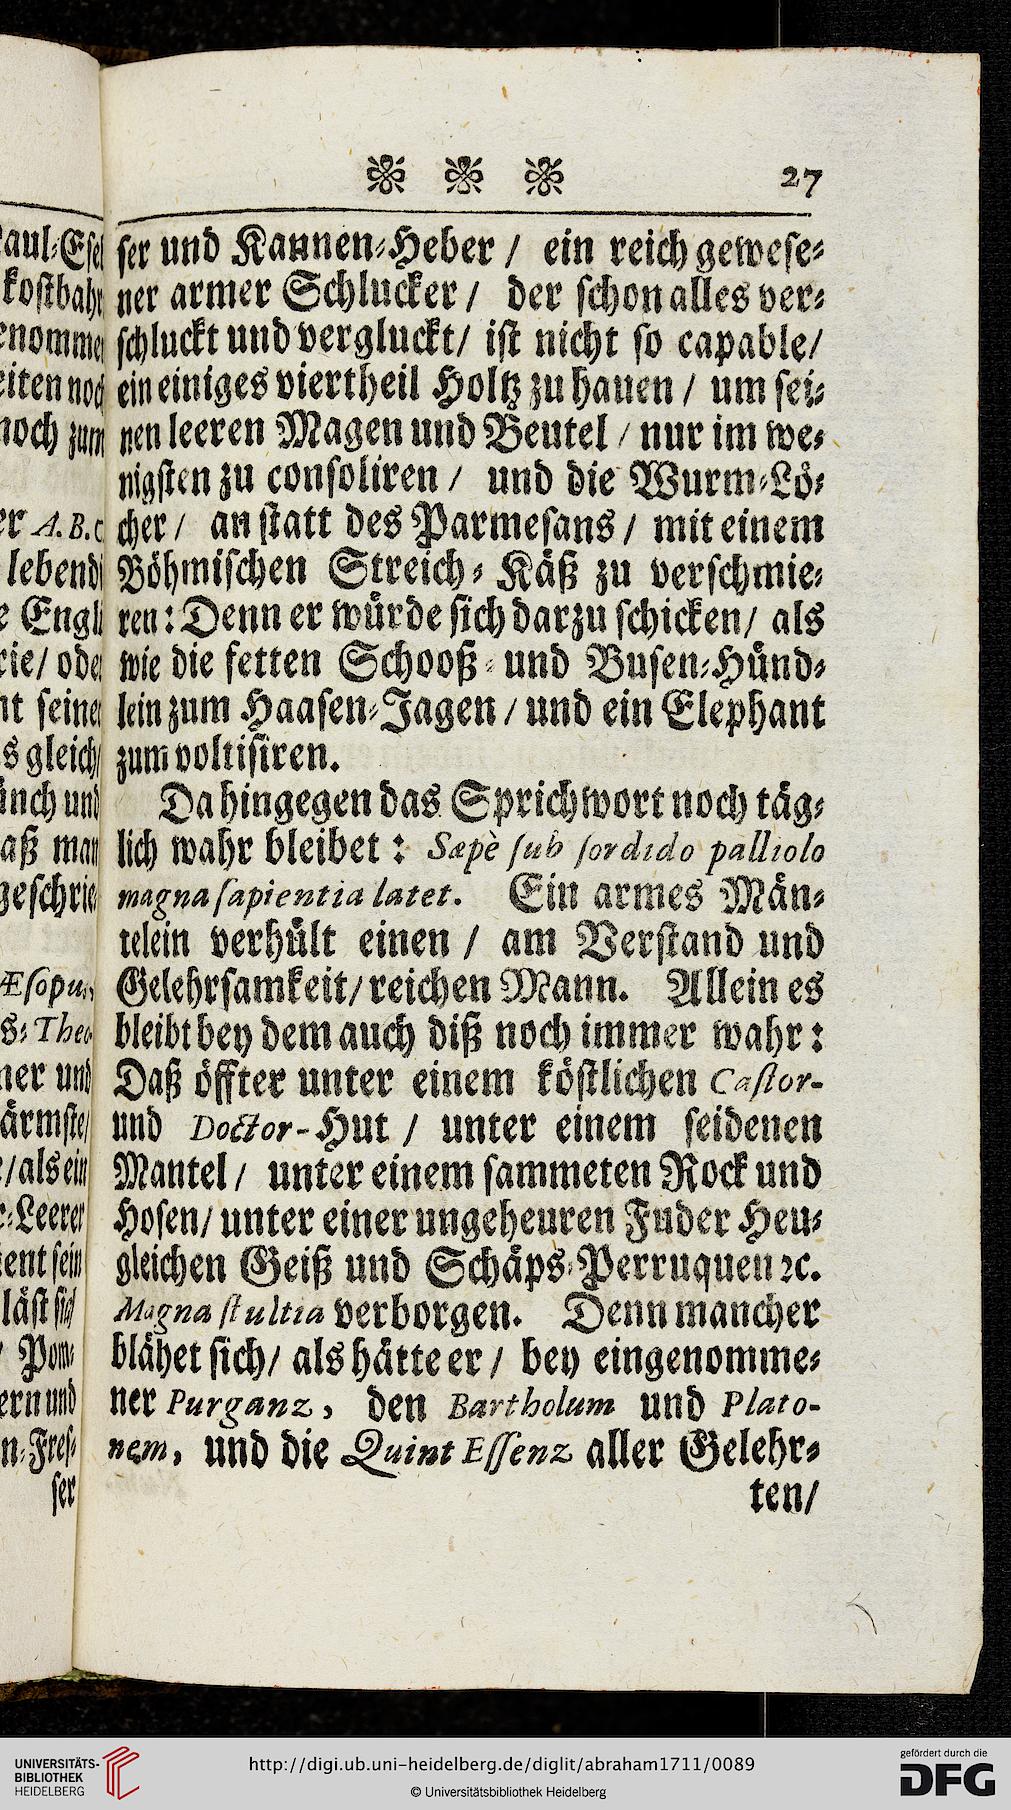 27
ser und Kannen-Heber / ein reich gewese-
ner armer Schlucker / der schon alles ver-
schluckt und vergluckt / ist nicht so capable /
ein einiges viertheil Holtz zu hauen / um sei-
nen leeren Magen und Beutel / nur im we-
nigsten zu consoliren / und die Wurm-Lö-
cher / an statt des Parmesans / mit einem
Böhmischen Streich-Käß zu verschmie-
ren: Denn er würde sich darzu schicken / als
wie die fetten Schooß- und Busen-Hünd-
lein zum Haasen-Jagen / und ein Elephant
zum voltisiren.
Da hingegen das Sprichwort noch täg-
lich wahr bleibet: Sæpè sub sordido palliolo
magna sapientia latet. Ein armes Män-
telein verhült einen / am Verstand und
Gelehrsamkeit / reichen Mann. Allein es
bleibt bey dem auch diß noch immer wahr:
Daß öffter unter einem köstlichen Castor-
und Doctor-Hut / unter einem seidenen
Mantel / unter einem sammeten Rock und
Hosen / unter einer ungeheuren Fuder Heu-
gleichen Geiß und Schäps-Perruquen ꝛc.
Magna stultia verborgen. Denn mancher
blähet sich / als hätte er / bey eingenomme-
ner Purganz, den Bartholum und Plato-
nem, und die Quint Essenz aller Gelehr-
ten /
aul-Esel
kostbahr
enomme
eiten noch
noch zum
er A.B.C
lebendi
e Engli
rie / ode
nt seine
s gleich /
ünch und
aß man
geschrie
Æsopum
s: Theo
ner und
ärmste /
/ als ein
r-Leerer
ent sein
läst sich
Pom-
ern und
n-Fres-
ser
UNIVERSITÄTS-
BIBLIOTHEK
HEIDELBERG
http://digi.ub.uni-heidelberg.de/diglit/abraham1711/0089
© Universitätsbibliothek Heidelberg
gefördert durch die
DFG